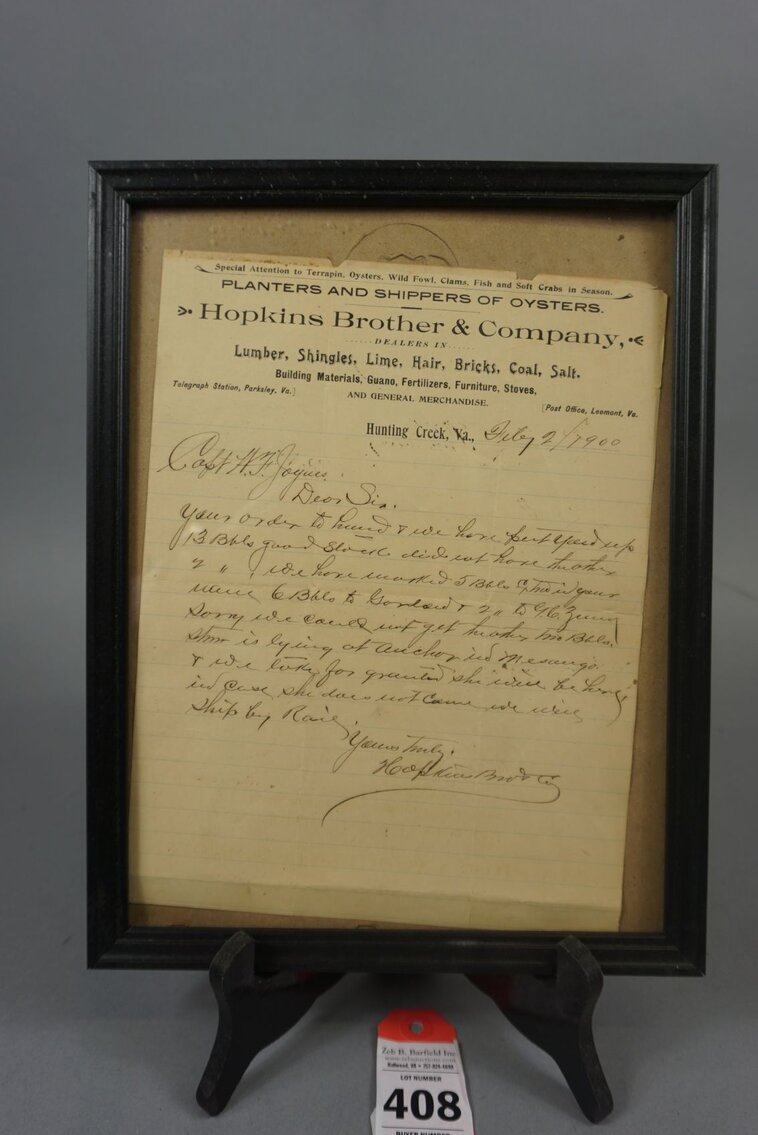 Special Attention to Terrapin, Oysters, Wild Fowl, Clams, Fish and Soft Crabs in Season.
PLANTERS AND SHIPPERS OF OYSTERS.
Hopkins Brother & Company,
DEALERS IN
Lumber, Shingles, Lime, Hair, Bricks, Coal, Salt.
Building Materials, Guano, Fertilizers, Furniture, Stoves,
AND GENERAL MERCHANDISE.
Telegraph Station, Parksley, Va.]
[Post Office, Leemont, Va.
Hunting Creek, Va., Feby 2/1900
Capt W. F. Joynes.
Dear Sir.
Your order to hand & we have put up
13 Bbls good Stock did not have
2 " we have marked 5 Bbls your
6 Bbls to & 2 " to
Sorry we could not get Bbls.
is lying at anchor in
& we take for granted she will be here
in case she does not come we will
Ship by Rail.
Yours Truly.
Hopkins Bro & Co
Zeb B. Barfield Inc
LOT NUMBER
408
BUYER NUMBER